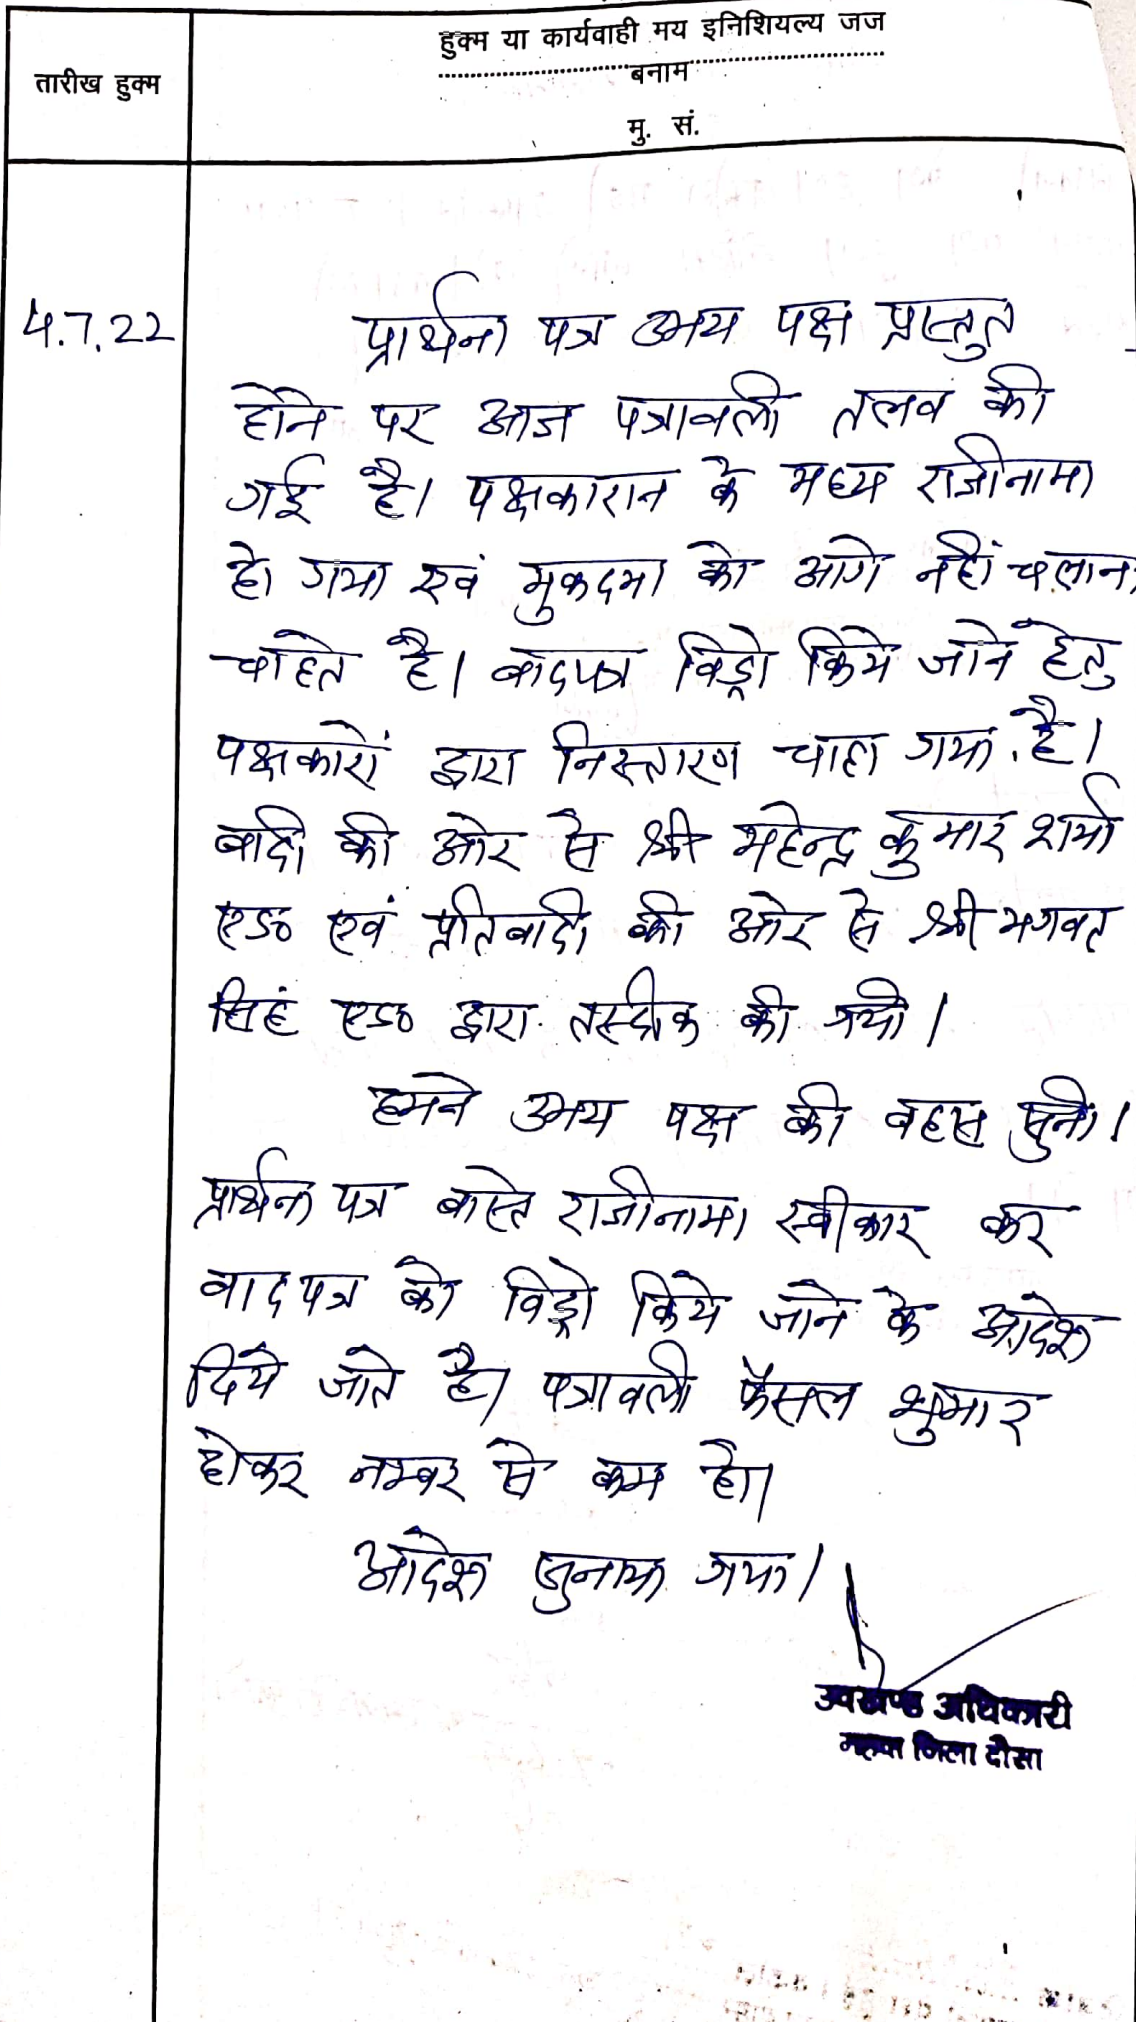 हुक्म या कार्यवाही मय इनिशियल्य जज
तारीख हुक्म
बनाम
मु. सं.
4.7.22
प्रार्थना पत्र उभय पक्ष प्रस्तुत
होने पर आज पत्रावली तलब की
गई है। पक्षकारान के मध्य राजीनामा
हो गया एवं मुकदमा को आगे नहीं चलाना
चाहते है। वादपत्र विड्रो किये जाने हेतु
पक्षकारों द्वारा निस्तारण चाहा गया है।
वादी की ओर से श्री महेन्द्र कुमार शर्मा
एड० एवं प्रतिवादी की ओर से श्री भगवत
सिहं एड० द्वारा तस्दीक की गयी।
हमने उभय पक्ष की बहस सुनी।
प्रार्थना पत्र वास्ते राजीनामा स्वीकार कर
वादपत्र को विड्रो किये जाने के आदेश
दिये जाते है। पत्रावली फैसल शुमार
होकर नम्बर से कम हो।
आदेश सुनाया गया।
उपखण्ड अधिकारी
जिला दौसा